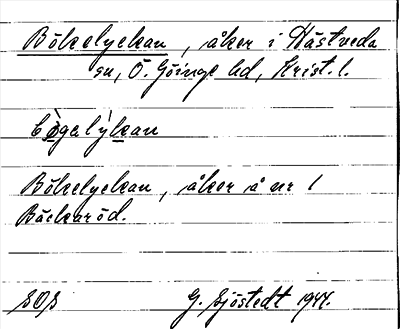 Bökelyckan, åker i Hästveda
sn, Ö. Göinge hd, Krist. l.
Bökelyckan, åker å nr 1
Bäckaröd.
SOS G. Sjöstedt 1944.